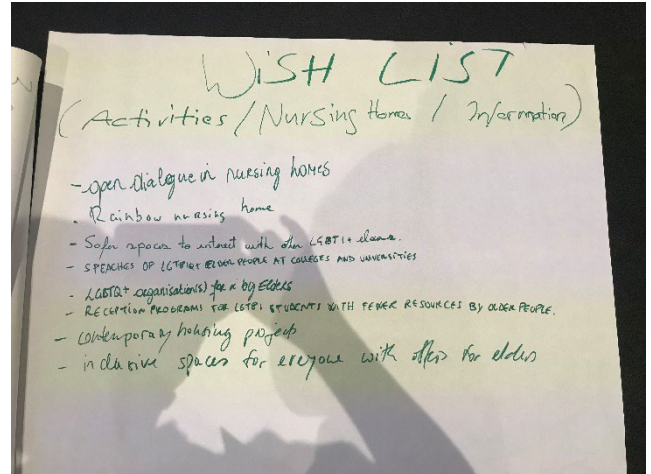 WiSH LIST
(Activities / Nursing Homes / Information)
- open dialogue in nursing homes
- Rainbow nursing home
- Safer spaces to interact with other LGBTI+
- SPEACHES OF LGTBIQ+ ELDER PEOPLE AT COLLEGES AND UNIVERSITIES
- LGBTQ+ organisation(s) for x by Elders
- RECEPTION PROGRAMS FOR LGTBI STUDENTS WITH FEWER RESOURCES BY OLDER PEOPLE.
- contemporary housing projects
- inclusive spaces for everyone with offers for elders